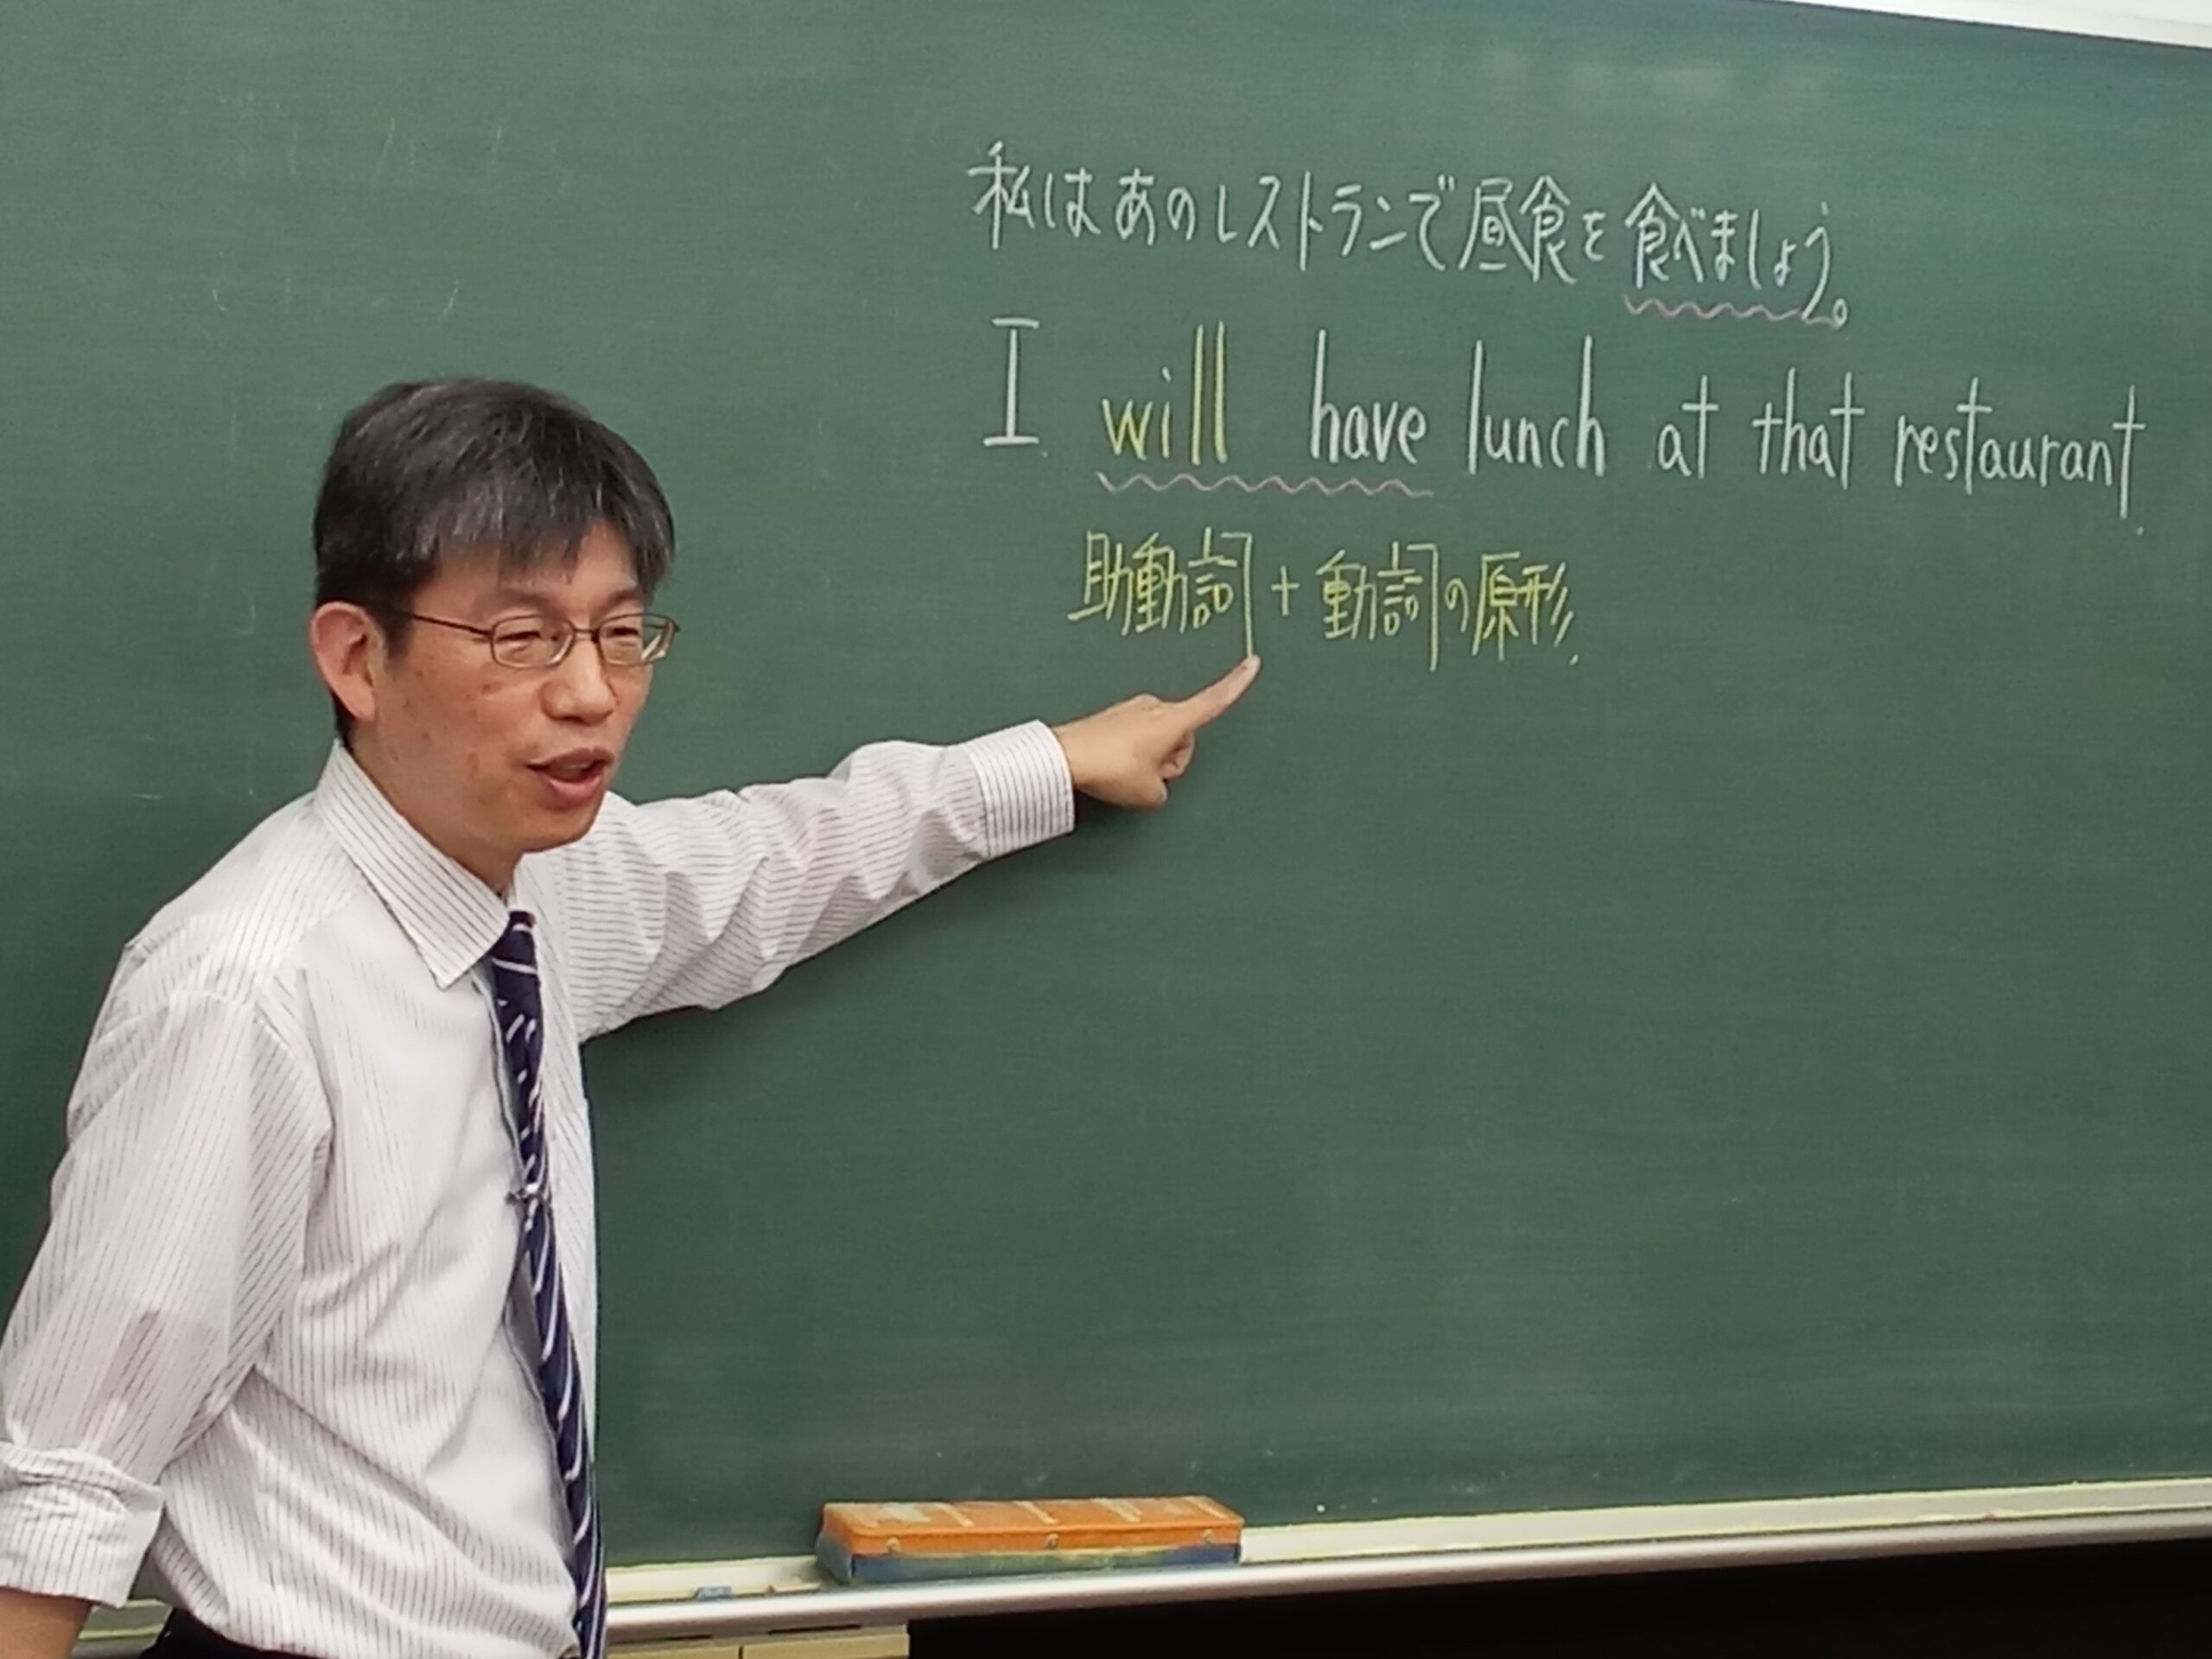 私はあのレストランで昼食を食べましょう。
I will have lunch at that restaurant.
助動詞+動詞の原形.